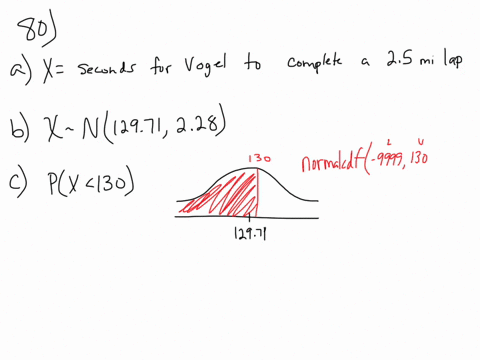 80)
a) X = seconds for Vogel to complete a 2.5 mi lap
b) X ~ N(129.71, 2.28)
c) P(X<130)
130
129.71
L U
normalcdf(-9999, 130